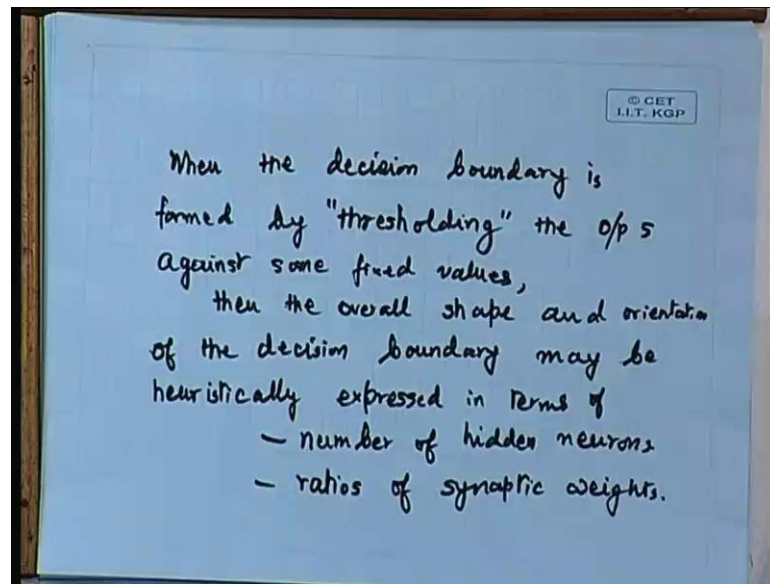 © CET
I.I.T. KGP
When the decision boundary is
formed by "thresholding" the o/p s
against some fixed values,
then the overall shape and orientation
of the decision boundary may be
heuristically expressed in terms of
– number of hidden neurons
– ratios of synaptic weights.